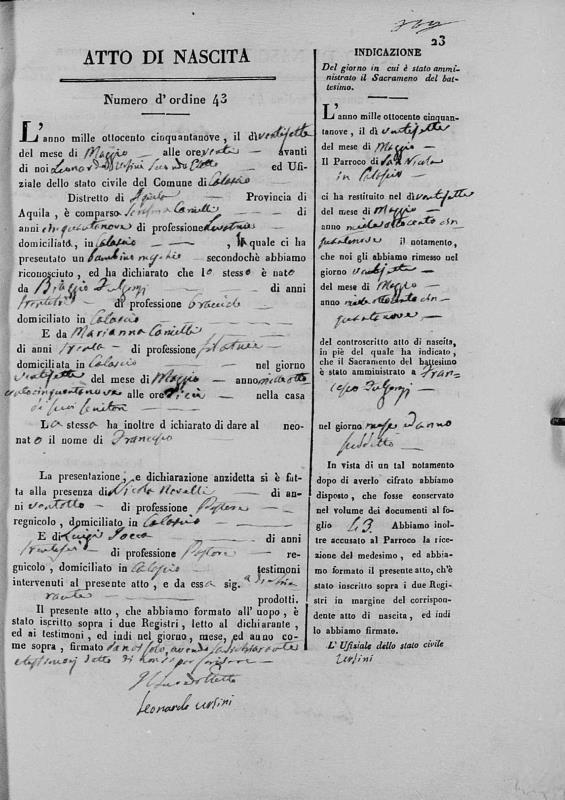 23
ATTO DI NASCITA
Numero d'ordine 43
L'anno mille ottocento cinquantanove, il dì ventisette
del mese di Maggio alle ore venti avanti
di noi Leonardo Ursini Secondo Eletto ed Uffi-
ziale dello stato civile del Comune di Calascio
Distretto di Aquila Provincia di
Aquila, è comparsa Serafina Comelli di
anni cinquantanove di professione
domiciliata, in Calascio , la quale ci ha
presentato un bambino maschio secondochè abbiamo
riconosciuto, ed ha dichiarato che lo stesso è nato
da Biaggio Fulgenzi di anni
di professione bracciale
domiciliato in Calascio
E da Marianna Comelli
di anni trenta di professione filatrice
domiciliata in Calascio nel giorno
ventisette del mese di Maggio anno mille otto-
centocinquantanove alle ore dieci nella casa
di suoi Genitori
La stessa ha inoltre dichiarato di dare al neo-
nato il nome di Francesco
La presentazione, e dichiarazione anzidetta si è fat-
ta alla presenza di Nicola di an-
ni ventotto di professione Pastore
regnicolo, domiciliato in Calascio
E di Luigi di anni
trentasei di professione Pastore re-
gnicolo, domiciliato in Calascio testimoni
intervenuti al presente atto, e da essa sig.ª dichia-
rante prodotti.
Il presente atto, che abbiamo formato all'uopo, è
stato iscritto sopra i due Registri, letto al dichiarante,
ed ai testimoni, ed indi nel giorno, mese, ed anno co-
me sopra, firmato da noi solo, avendo la dichiarante
e testimonj detto di non saper scrivere
Il Secondo Eletto
Leonardo Ursini
INDICAZIONE
Del giorno in cui è stato ammi-
nistrato il Sacrameno del bat-
tesimo.
L'anno mille ottocento cinquan-
tanove, il dì ventisette
del mese di Maggio
Il Parroco di San Nicola
in Calascio
ci ha restituito nel dì ventisette
del mese di Maggio
anno mille ottocento cin-
quantanove il notamento,
che noi gli abbiamo rimesso nel
giorno ventisette
del mese di Maggio
anno mille ottocento cin-
quantanove,
del controscritto atto di nascita,
in piè del quale ha indicato,
che il Sacramento del battesimo
è stato amministrato a Fran-
cesco Fulgenzi
nel giorno mese ed anno
suddetto
In vista di un tal notamento
dopo di averlo cifrato abbiamo
disposto, che fosse conservato
nel volume dei documenti al fo-
glio 43. Abbiamo inol-
tre accusato al Parroco la rice-
zione del medesimo, ed abbia-
mo formato il presente atto, ch'è
stato inscritto sopra i due Regi-
stri in margine del corrispon-
dente atto di nascita, ed indi
lo abbiamo firmato.
L' Ufisiale dello stato civile
Ursini